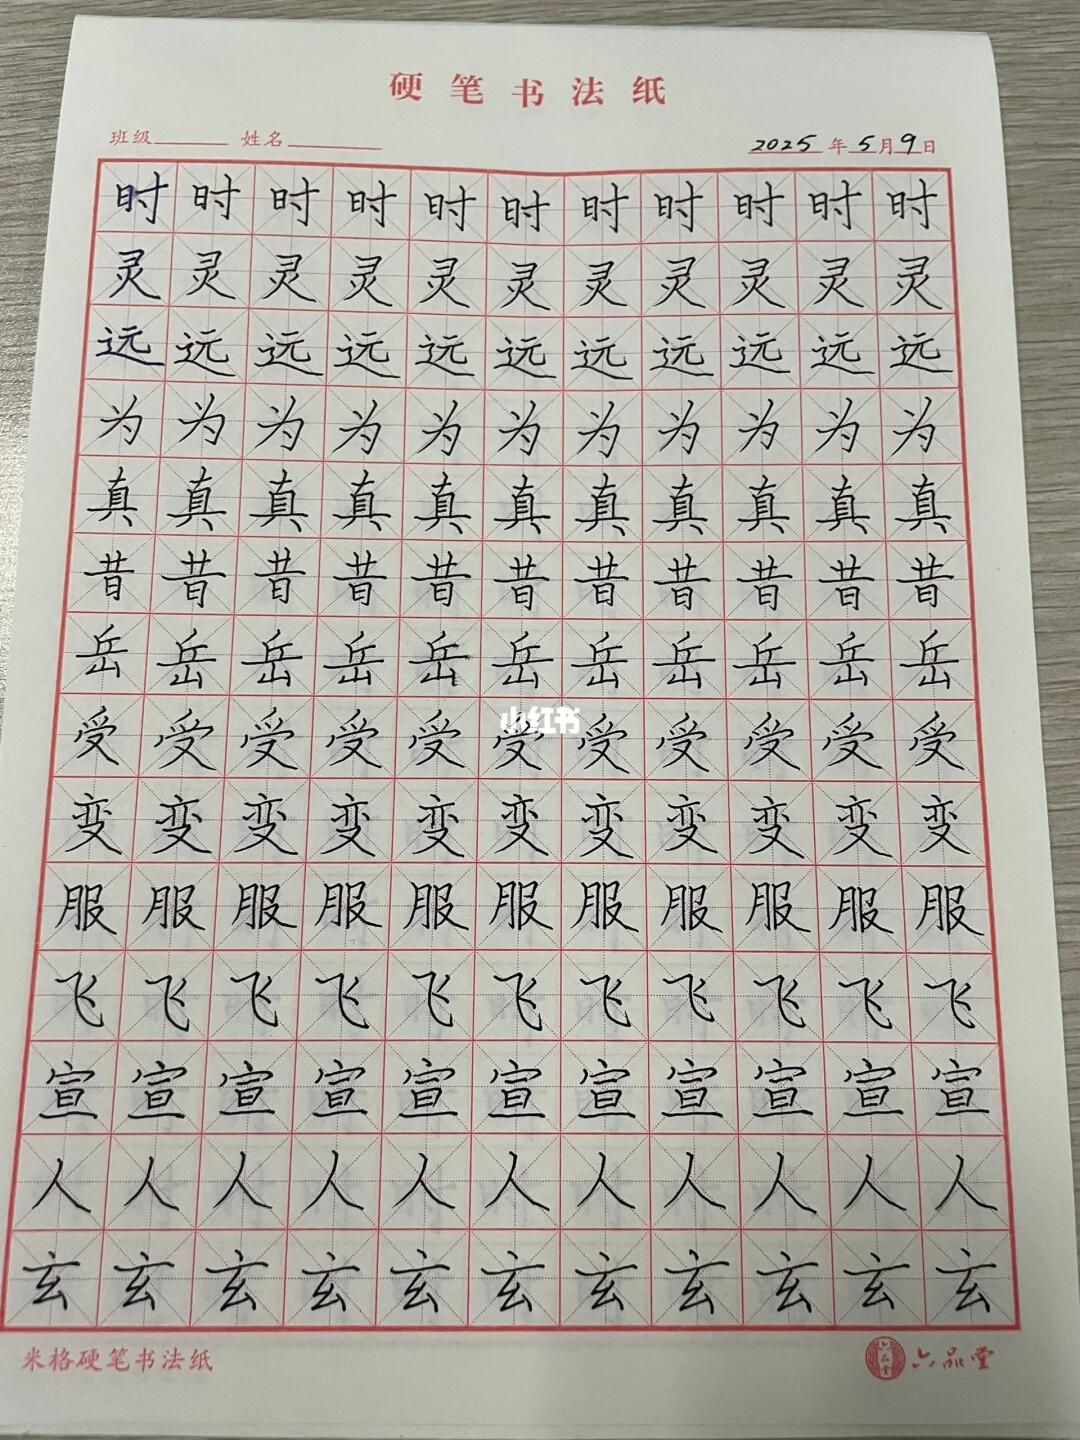 硬笔书法纸
班级 姓名 2025年5月9日
时时时时时时时时时时时
灵灵灵灵灵灵灵灵灵灵灵
远远远远远远远远远远远
为为为为为为为为为为为
真真真真真真真真真真真
昔昔昔昔昔昔昔昔昔昔昔
岳岳岳岳岳岳岳岳岳岳岳
受受受受受受受受受受受
小红书
变变变变变变变变变变变
服服服服服服服服服服服
飞飞飞飞飞飞飞飞飞飞飞
宣宣宣宣宣宣宣宣宣宣宣
人人人人人人人人人人人
玄玄玄玄玄玄玄玄玄玄玄
米格硬笔书法纸 六品堂 六品堂